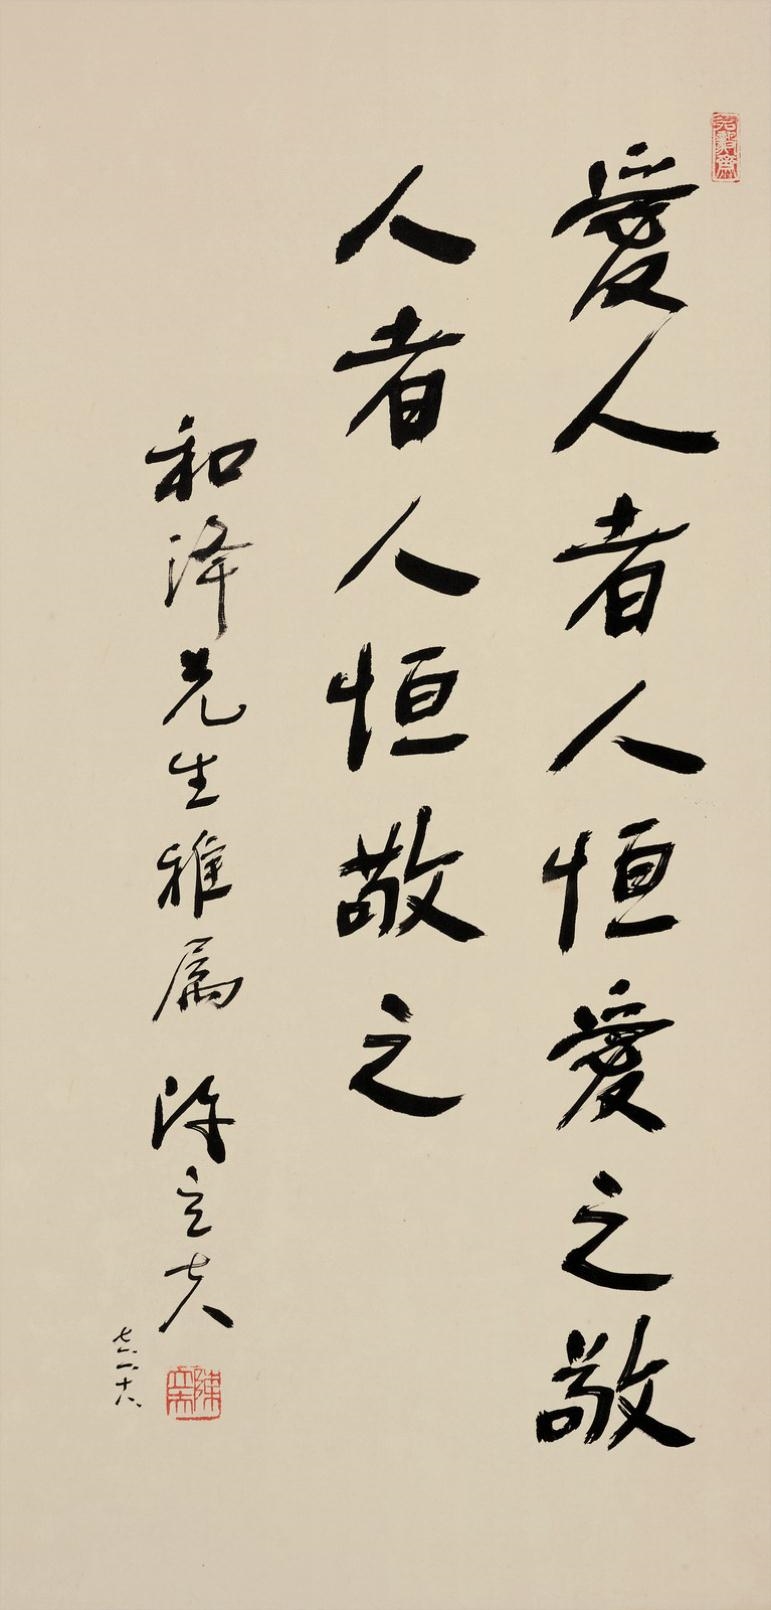 愛人者人恒愛之敬
人者人恒敬之
和泽先生雅属 陳立夫
七六.一.十八.
陳立夫